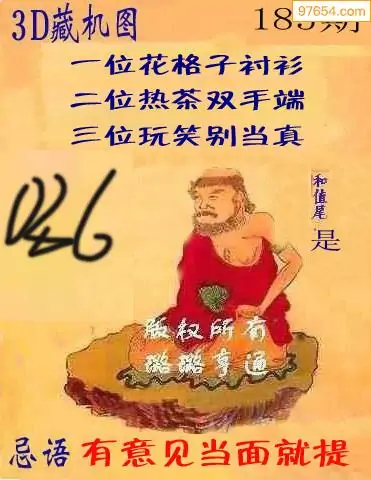 97654.com
3D藏机图 185期
一位花格子衬衫
二位热茶双手端
三位玩笑别当真
和值尾
是
版权所有
璐璐亨通
忌语 有意见当面就提